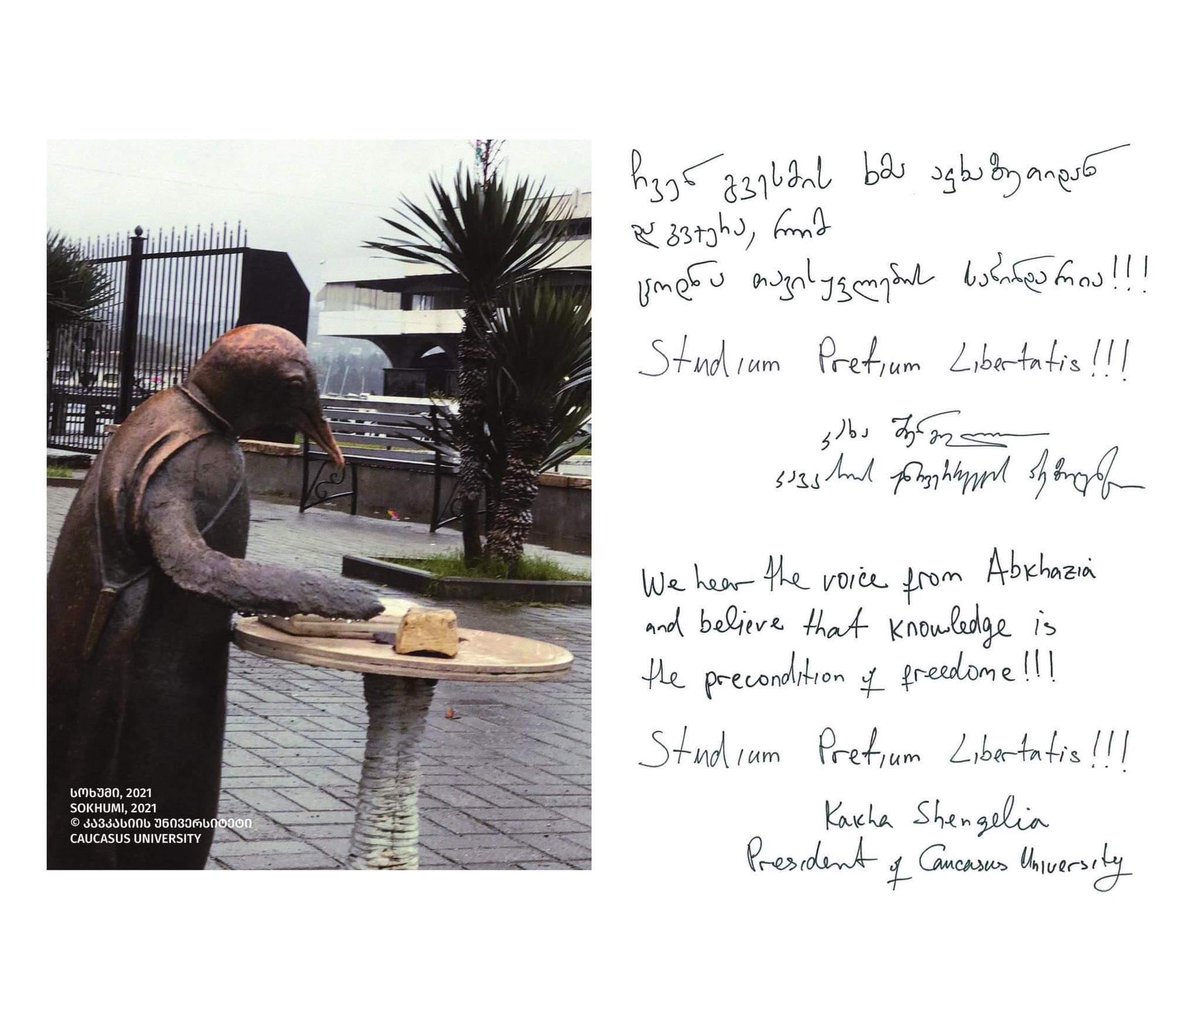 სოხუმი, 2021
SOKHUMI, 2021
© კავკასიის უნივერსიტეტი
CAUCASUS UNIVERSITY
ჩვენ გვესმის ხმა აფხაზეთიდან
და გვჯერა, რომ
ცოდნა თავისუფლების საწინდარია!!!
Studium Pretium Libertatis!!!
კახა შენგელია
კავკასიის უნივერსიტეტის პრეზიდენტი
We hear the voice from Abkhazia
and believe that knowledge is
the precondition of freedome!!!
Studium Pretium Libertatis!!!
Kakha Shengelia
President of Caucasus University